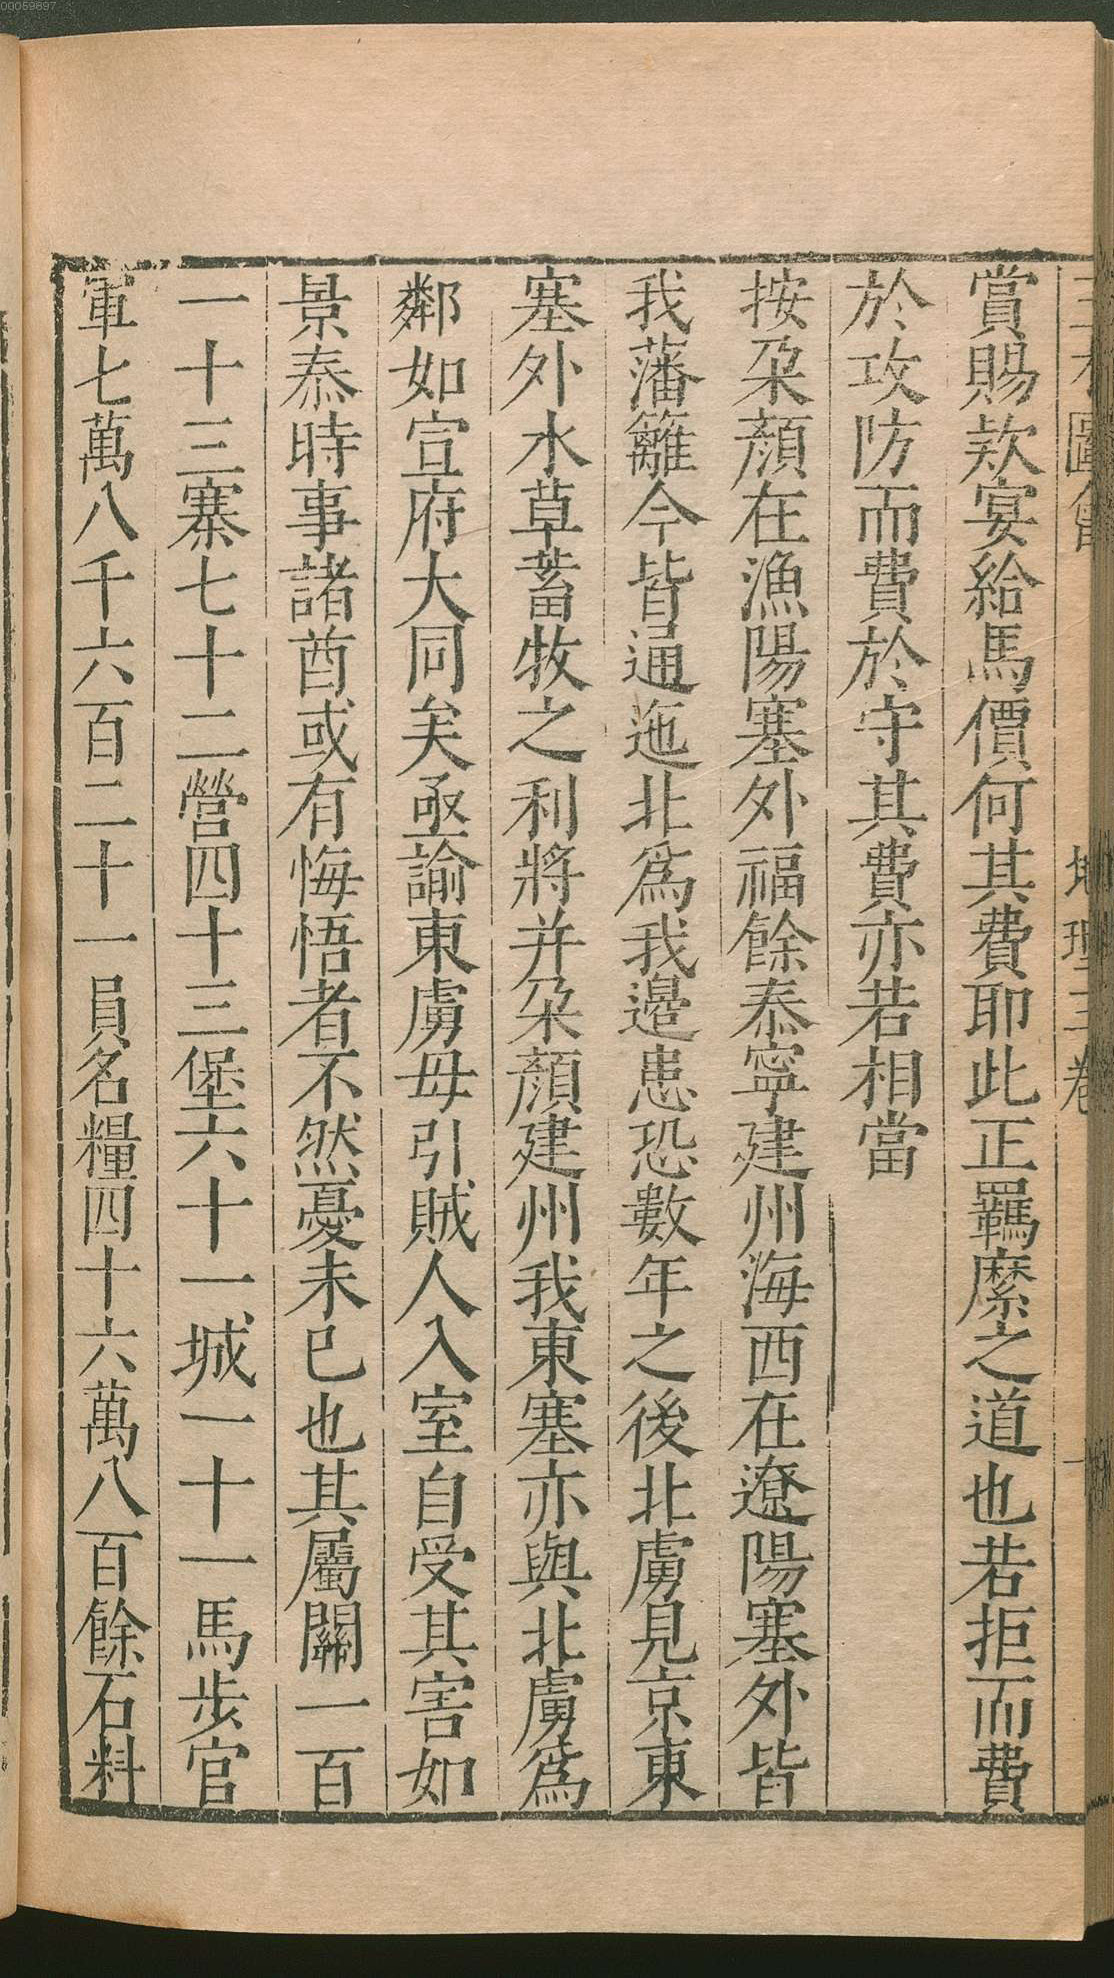 00059897
賞賜欵宴給馬價何其費耶此正羈縻之道也若拒而費
於攻防而費於守其費亦若相當
按朶顏在漁陽塞外福餘泰寧建州海西在遼陽塞外皆
我藩籬今皆通迤北爲我邊患恐數年之後北虜見京東
塞外水草蓄牧之利將并朶顏建州我東塞亦與北虜爲
鄰如宣府大同矣亟諭東虜毋引賊人入室自受其害如
景泰時事諸酋或有悔悟者不然憂未已也其屬關一百
一十三寨七十二營四十三堡六十一城一十一馬步官
軍七萬八千六百二十一員名糧四十六萬八百餘石料